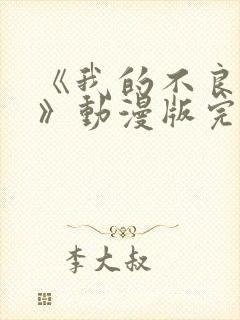 《我的不良
》動漫版完
李大叔